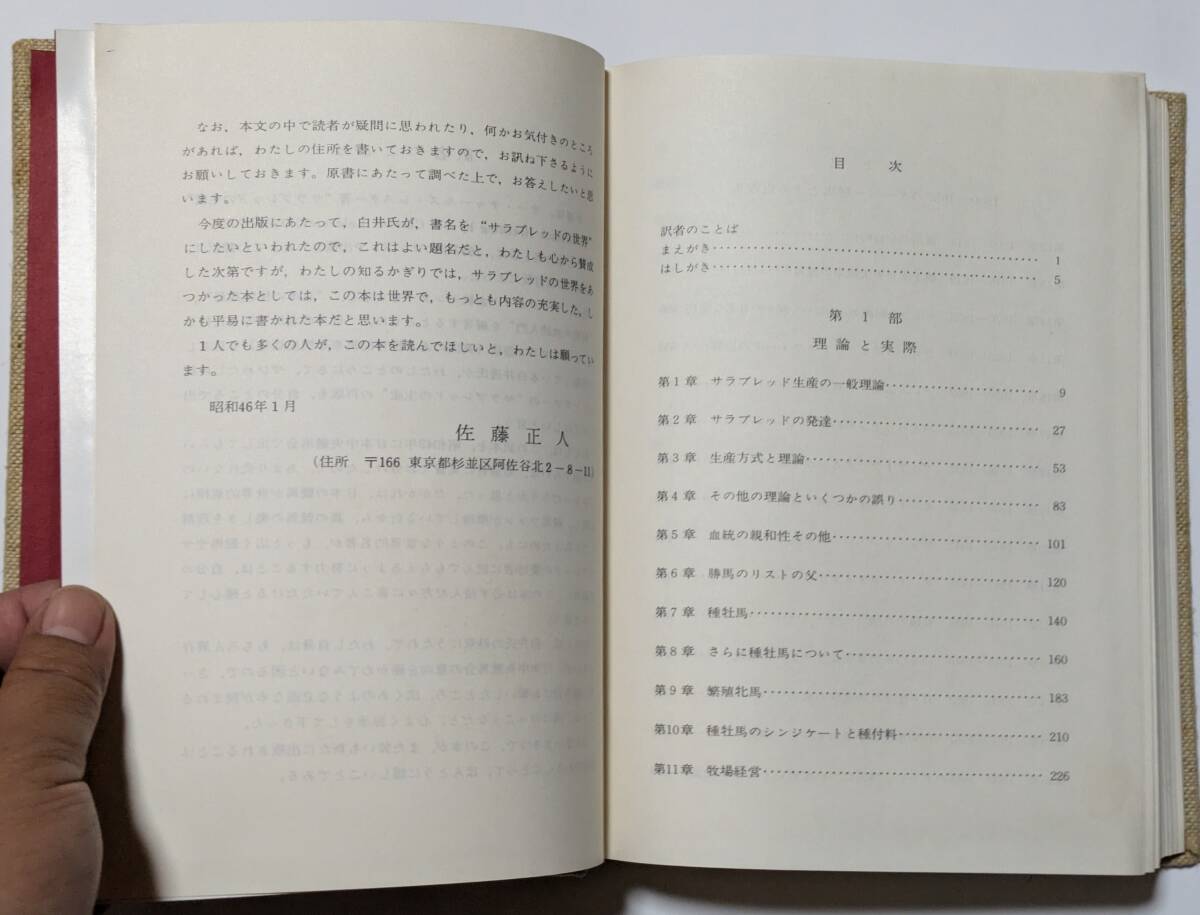 なお，本文の中で読者が疑問に思われたり，何かお気付きのところ
があれば，わたしの住所を書いておきますので，お訊ね下さるように
お願いしておきます。原書にあたって調べた上で，お答えしたいと思
います。
今度の出版にあたって，白井氏が，書名を“サラブレッドの世界”
にしたいといわれたので，これはよい題名だと，わたしも心から賛成
した次第ですが，わたしの知るかぎりでは，サラブレッドの世界をあ
つかった本としては，この本は世界で，もっとも内容の充実した，し
かも平易に書かれた本だと思います。
1人でも多くの人が，この本を読んでほしいと，わたしは願ってい
ます。
昭和46年1月
佐藤正人
(住所 〒166 東京都杉並区阿佐谷北2－8－11)
目次
訳者のことば
まえがき…………………………………………………… 1
はしがき…………………………………………………… 5
第1部
理論と実際
第1章 サラブレッド生産の一般理論…………………… 9
第2章 サラブレッドの発達…………………………… 27
第3章 生産方式と理論………………………………… 53
第4章 その他の理論といくつかの誤り……………… 83
第5章 血統の親和性その他…………………………… 101
第6章 勝馬のリストの父……………………………… 120
第7章 種牡馬…………………………………………… 140
第8章 さらに種牡馬について………………………… 160
第9章 繁殖牝馬………………………………………… 183
第10章 種牡馬のシンジケートと種付料……………… 210
第11章 牧場経営………………………………………… 226